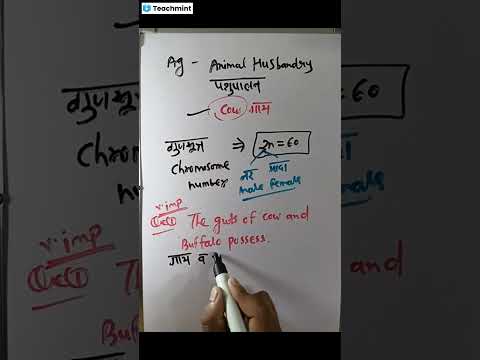 Teachmint
Ag - Animal Husbandry
पशुपालन
Cow गाय
गुणसूत्र ⇒ 2n=60
Chromosome नर मादा
number: male female
v.imp
The guts of cow and
Buffalo possess.
गाय व